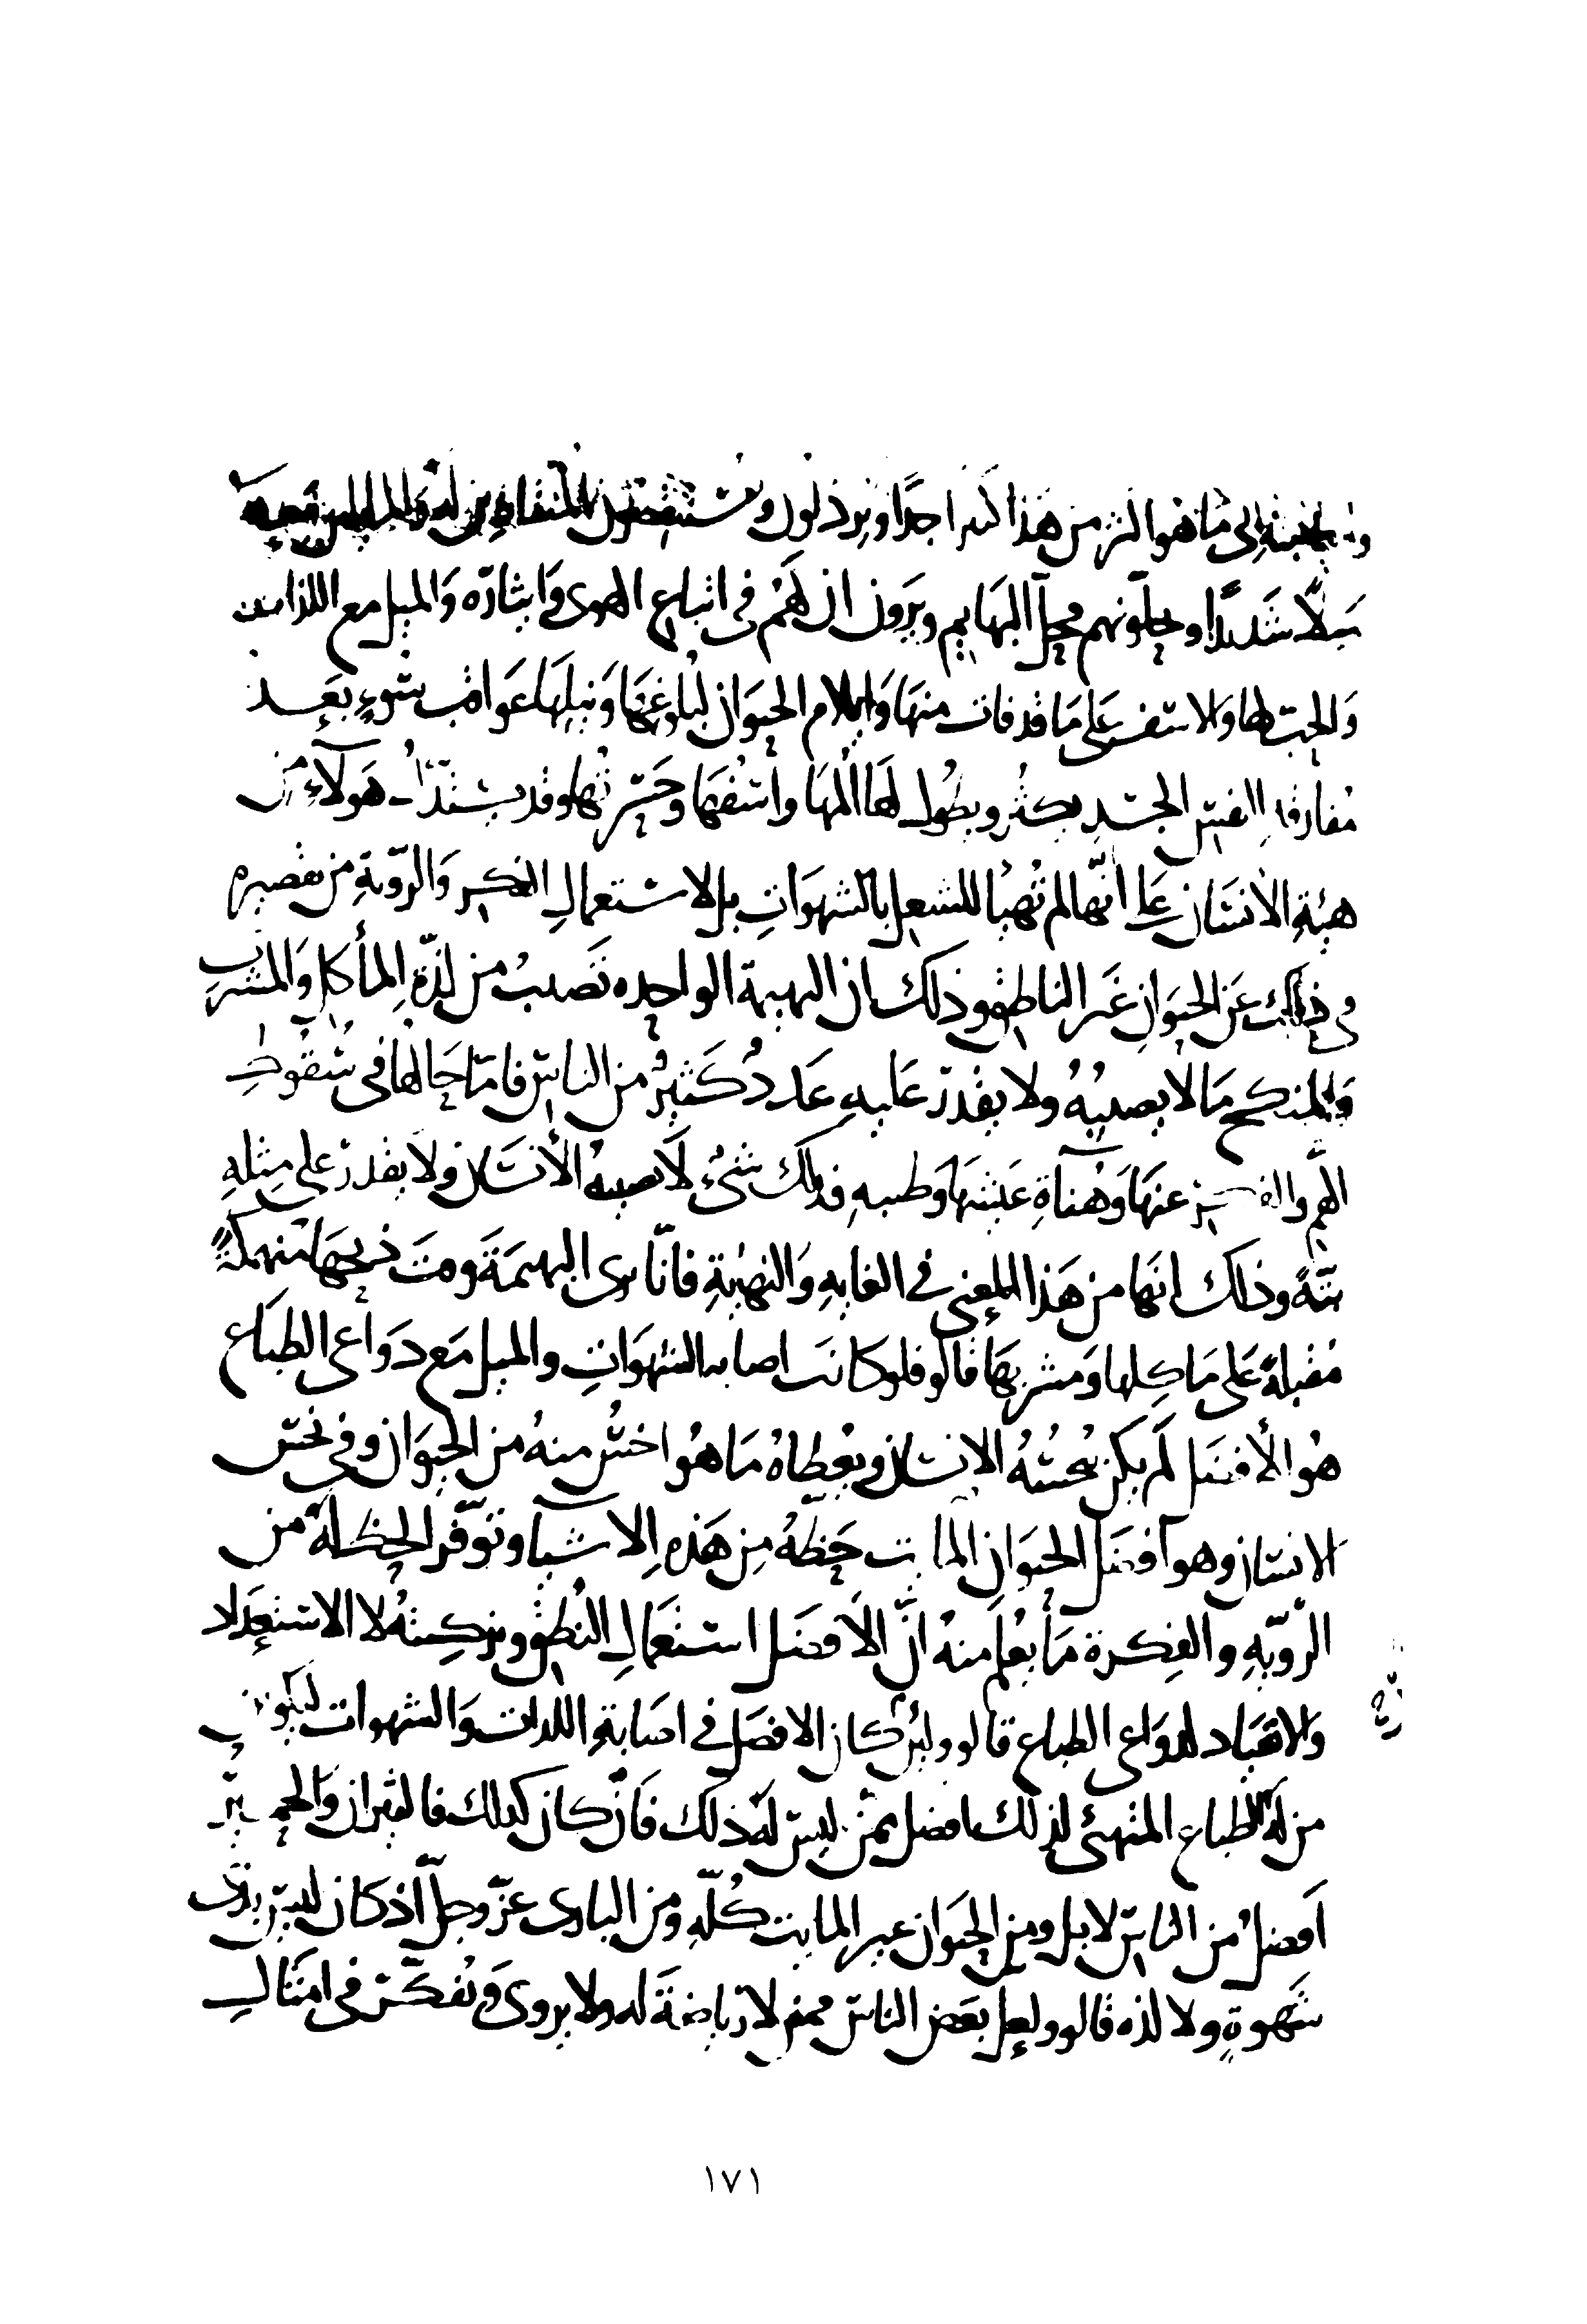 إلى ما هو اكثر من هذا كثيرا جدًّا ويرذلون ويستنقصون المنقادين له والمايلين معه
ميلًا شديدًا ويحلّونهم محلّ البهايم ويرون ان لهم في اتباع الهوى وايثاره والميل مع اللذات
والحب لها والاسف على ما قد فات منها وايلام الحيوان لبلوغها ونيلها عواقب سوءٍ بعد
مفارقة النفس الجسد يكثر ويطول لها المها واسفها وحسرتها وقد يستدل هولاء من
هيئة الانسان على انّها لم تهيا للشغل بالشهواتِ بل لاستعمالِ الفكر والرّويةِ من تقصيره
في ذلك عن الحيوانِ غير الناطق وذلك ان البهيمة الواحده تصيبُ من لذّةِ المأكل والمشرب
والمنكح ما لا يصيبُهُ ولا يقدرُ عليهِ عددٌ كثيرٌ من الناسِ فامّا حالها في سُقوطِ
الهمِّ والفكر عنها وهناةِ عيشها وطيبهِ فذلك شئٌ لا يصيبهُ الأنسان ولا يقدر على مثلهِ
بتّةً وذلك انها من هذا المعنى في الغايهِ والنهايةِ فانّا نرى البهيمَةَ وقت ذبحها منهمكةً
مقبلةً على ماكلها ومشربها قالو فلو كانت اصابه الشهواتِ والميل مع دواعي الطباع
هو الأفضل لم يكن يُبخسُهُ الانسان ويُعطاهُ ما هو اخسُّ منهُ من الحيوان وفي بخس
الانسان وهو أفضل الحيوان المايت حظّهُ مِن هذهِ الاشياء وتوفّر الحظ له من
الرّويّهِ والفكرة ما يُعلم منهُ انّ الأفضل استعمال النُطق وتزكيتهُ لا الاستعباد
والانقياد لدواعي الطباع قالو ولئن كان الافضل في اصابةِ اللذات والشهوات ليكونن
من له الطباع المتهيئ لذلك افضل ممّن ليس له ذلك فان كان كذلك فالثيران والحمير
أفضلُ من الناس لا بل ومن الحيوان غير المايت كُلّهِ ومن البارى عزّ وجلّ اذ كان ليس بذى
شهوةٍ ولا لذه قالو ولعل بعض الناس ممن لا رياضة له ولا يروى ويُفكّر في امثال
١٧١